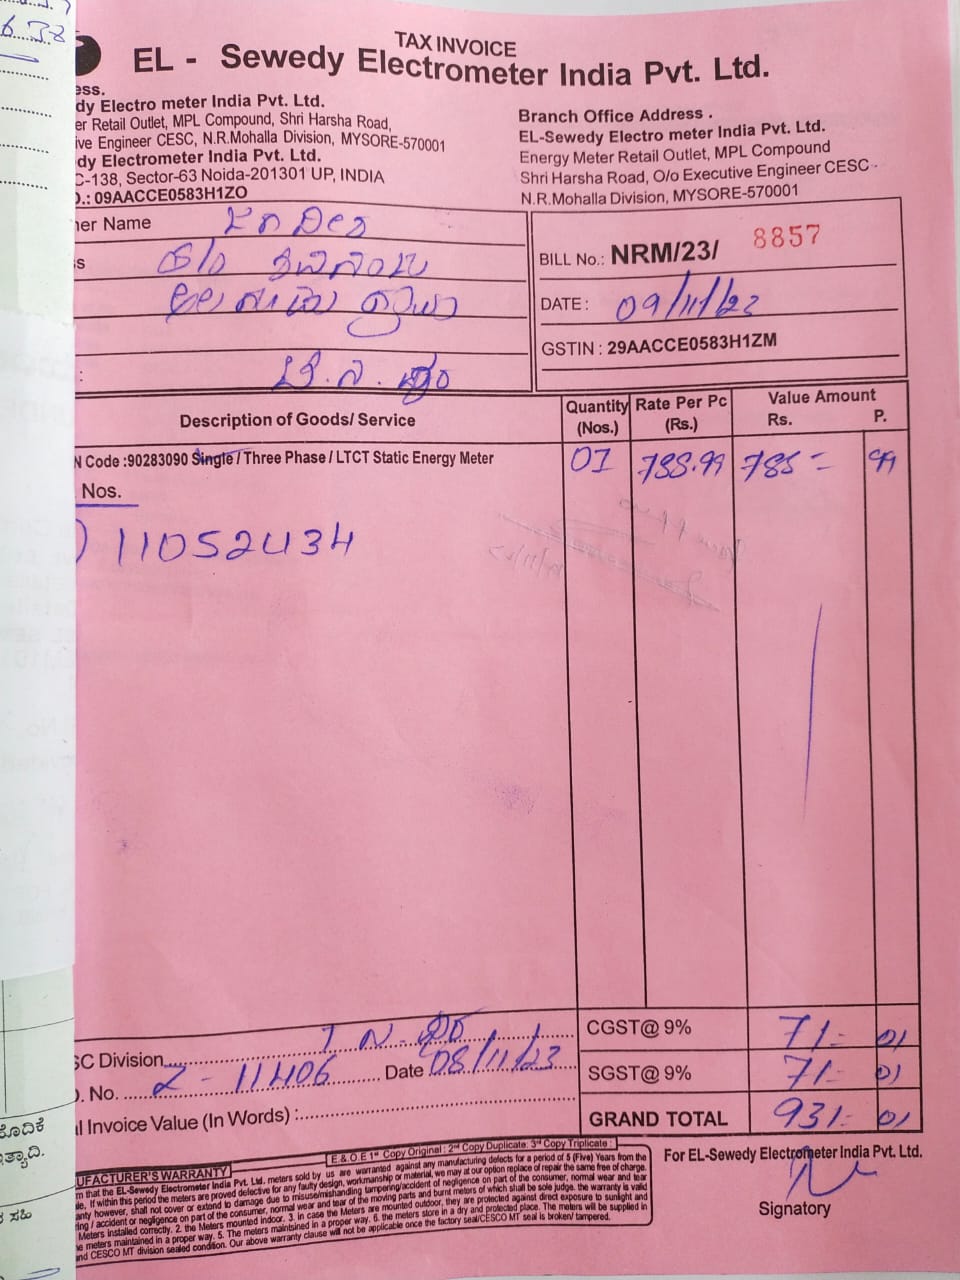 6.38
TAX INVOICE
EL - Sewedy Electrometer India Pvt. Ltd.
ess.
dy Electro meter India Pvt. Ltd.
er Retail Outlet, MPL Compound, Shri Harsha Road,
ive Engineer CESC, N.R.Mohalla Division, MYSORE-570001
dy Electrometer India Pvt. Ltd.
C-138, Sector-63 Noida-201301 UP, INDIA
O.: 09AACCE0583H1ZO
Branch Office Address .
EL-Sewedy Electro meter India Pvt. Ltd.
Energy Meter Retail Outlet, MPL Compound
Shri Harsha Road, O/o Executive Engineer CESC
N.R.Mohalla Division, MYSORE-570001
ner Name
s
:
BILL No.: NRM/23/ 8857
DATE : 09/11/23
GSTIN : 29AACCE0583H1ZM
Description of Goods/ Service
Quantity (Nos.)
Rate Per Pc (Rs.)
Value Amount
Rs. P.
N Code :90283090 Single / Three Phase / LTCT Static Energy Meter
01 788.99 785 = 99
Nos.
) 11052434
CGST@ 9% 71- 01
SC Division
SGST@ 9% 71- 01
). No. 2-11406 Date 08/11/23
l Invoice Value (In Words) :
GRAND TOTAL 931- 01
E & O.E 1st Copy Original : 2nd Copy Duplicate: 3rd Copy Triplicate :
For EL-Sewedy Electrometer India Pvt. Ltd.
Signatory
UFACTURER'S WARRANTY
m that the EL-Sewedy Electrometer India Pvt. Ltd. meters sold by us are warranted against any manufacturing defects for a period of 5 (Five) Years from the
le, If within this period the meters are proved defective for any faulty design, workmanship or material, we may at our option replace of repair the same free of charge.
anty however, shall not cover or extend to damage due to misuse/mishandling tampering/accident of negligence on part of the consumer, normal wear and tear
ring / accident or negligence on part of the consumer, normal wear and tear of the moving parts and burnt meters of which shall be sole judge. the warranty is valid
Meters installed correctly. 2. the Meters mounted indoor. 3. in case the Meters are mounted outdoor, they are protected against direct exposure to sunlight and
e meters maintained in a proper way. 5. The meters maintsined in a proper way. 6. the meters store in a dry and protected place. The meters will be supplied in
nd CESCO MT division sealed condition. Our above warranty clause will not be applicable once the factory seal/CESCO MT seal is broken/ tampered.
ಕೊದಿಕೆ
ತ್ಯಾದಿ.
ಸಹಿ